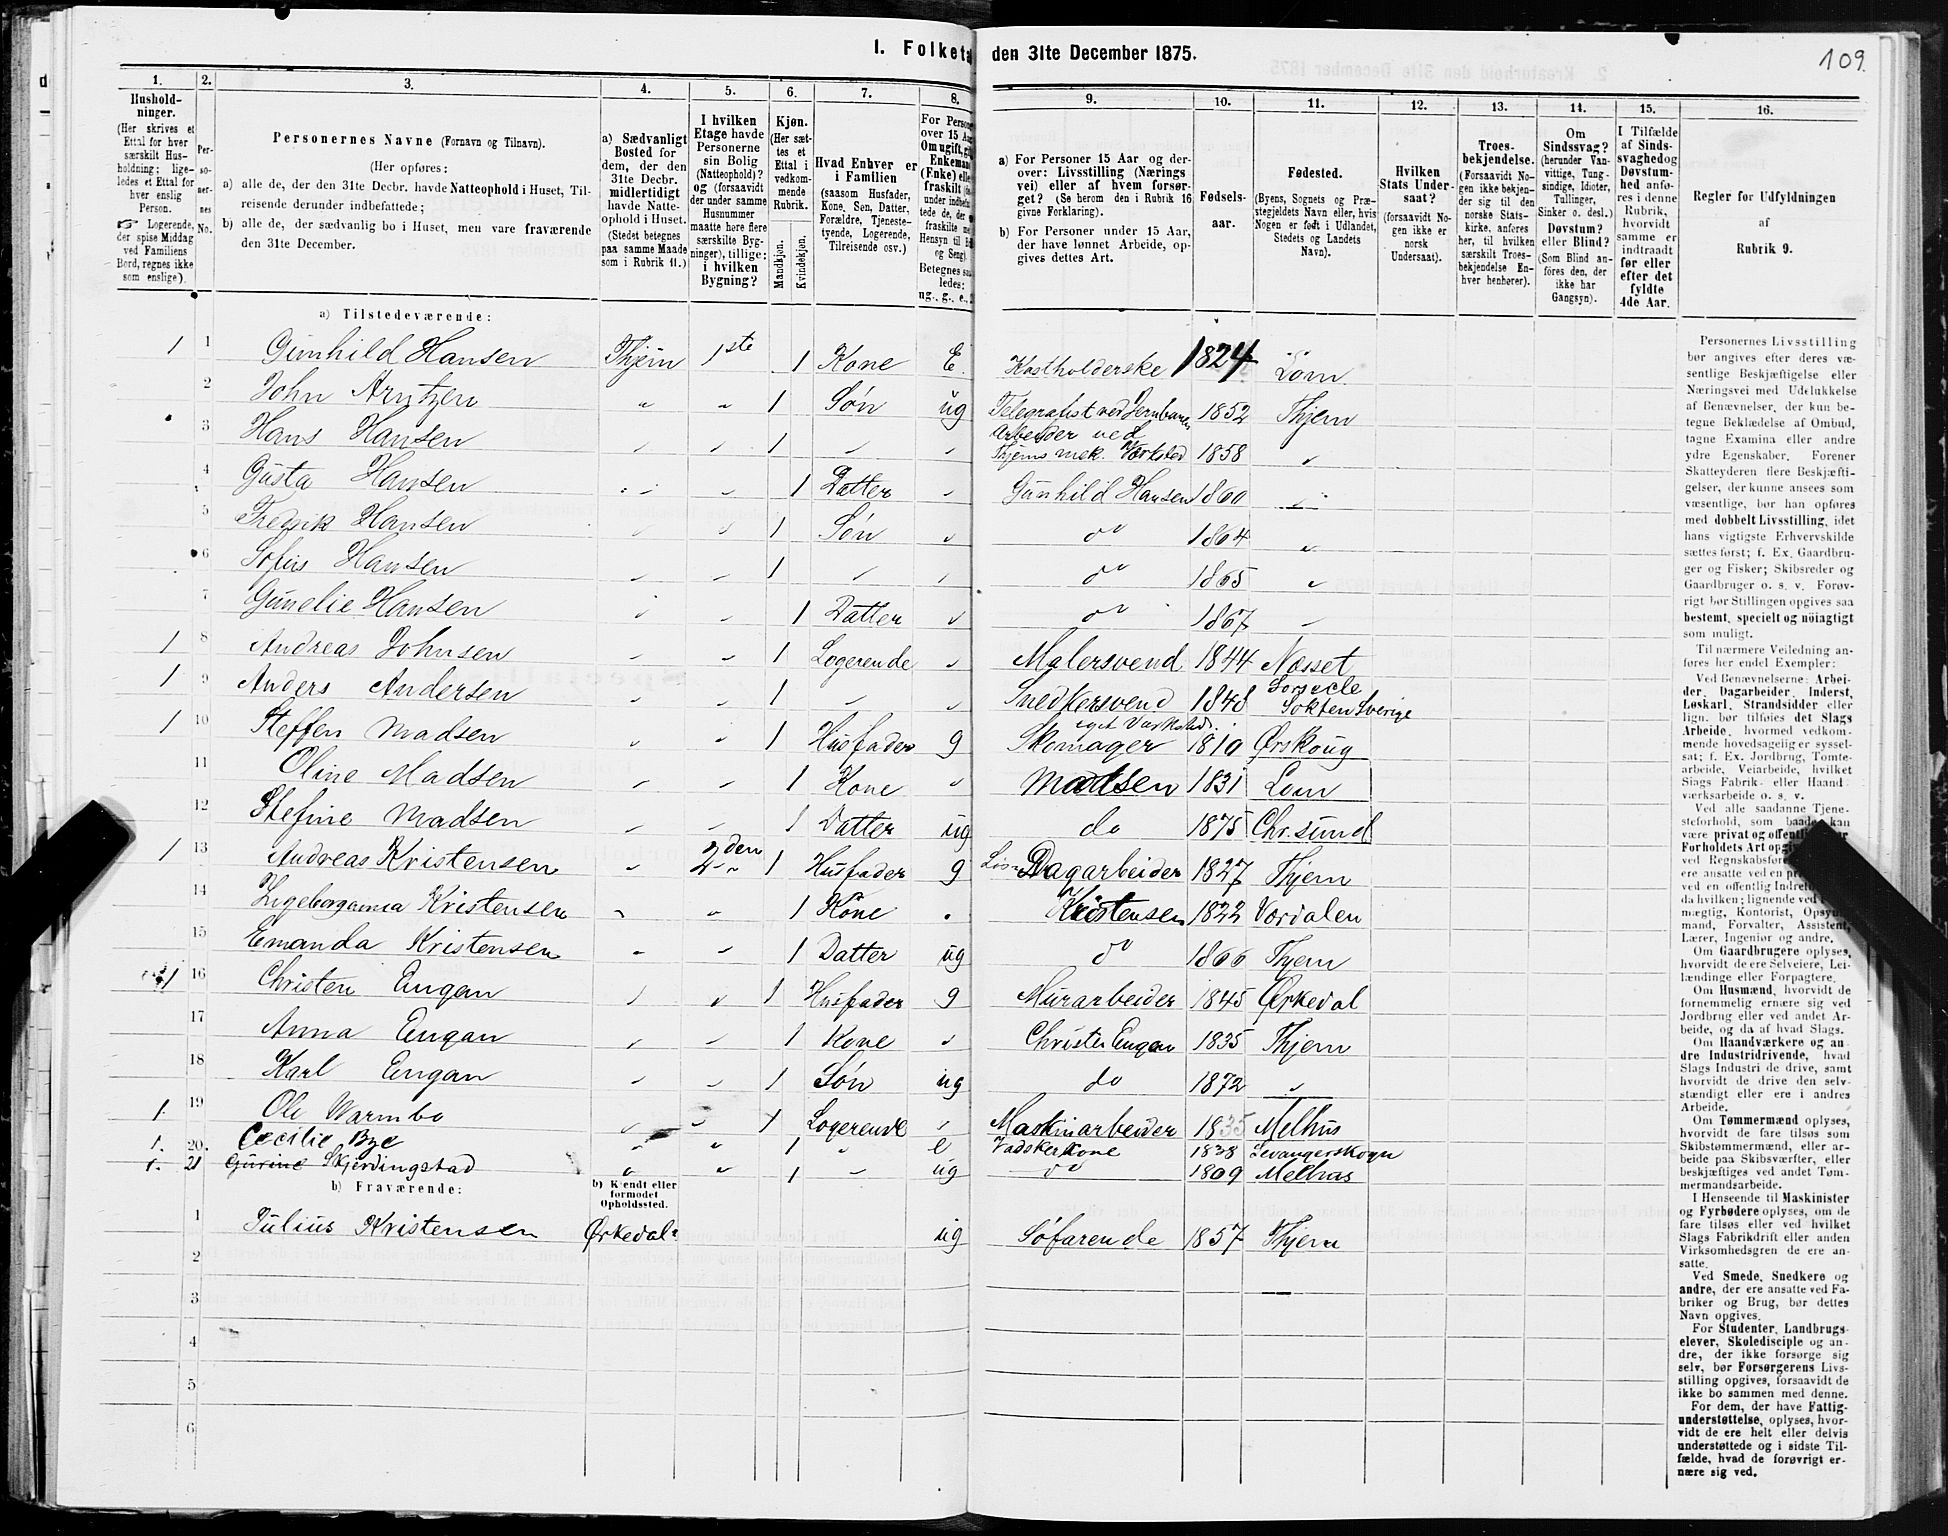 1. Folketæ
den 31te December 1875.
109.
1.
2.
3.
4.
5.
6.
7.
8.
9.
10.
11.
12.
13.
14.
15.
16.
Hushold-
ninger.
(Her skrives et
Ettal for hver
særskilt Hus-
holdning; lige-
ledes et Ettal for
hver enslig
Person.
☞ Logerende,
der spise Middag
ved Familiens
Bord, regnes ikke
som enslige).
Per-
so-
ner-
nes
No.
Personernes Navne (Fornavn og Tilnavn).
(Her opføres:
a) alle de, der den 31te Decbr. havde Natteophold i Huset, Til-
reisende derunder indbefattede;
b) alle de, der sædvanlig bo i Huset, men vare fraværende
den 31te December.
a) Sædvanligt
Bosted for
dem, der den
31te Decbr.
midlertidigt
havde Natte-
ophold i Huset.
(Stedet betegnes
paa samme Maade
som i Rubrik 11.)
I hvilken
Etage havde
Personerne
sin Bolig
(Natteophold)?
og (forsaavidt
der under samme
Husnummer
maatte høre flere
særskilte Byg-
ninger), tillige:
i hvilken
Bygning?
Kjøn.
(Her sæt-
tes et
Ettal i
vedkom-
mende
Rubrik.
Mandkjøn.
Kvindekjøn.
Hvad Enhver er
i Familien
(saasom Husfader,
Kone, Søn, Datter,
Forældre, Tjeneste-
tyende, Logerende,
Tilreisende osv.)
For Persone
over 15 Aa
Om ugift, g
Enkeman
(Enke) elle
fraskilt
under indbef
tede de, der
fraskilte
Hensyn til B
og Seng).
Betegnes saa
ledes:
ug., g., e.,
a) For Personer 15 Aar og der-
over: Livsstilling (Nærings
vei) eller af hvem forsør-
get? (Se herom den i Rubrik 16
givne Forklaring).
b) For Personer under 15 Aar,
der have lønnet Arbeide, op-
gives dettes Art.
Fødsels-
aar.
Fødested.
(Byens, Sognets og Præ-
stegjeldets Navn eller, hvis
Nogen er født i Udlandet,
Stedets og Landets
Navn).
Hvilken
Stats Under-
saat?
(forsaavidt No-
gen ikke er
norsk
Undersaat).
Troes-
bekjendelse.
(Forsaavidt No-
gen ikke bekjen-
der sig til den
norske Stats-
kirke, anføres
her, til hvilken
særskilt Troes-
bekjendelse En-
hver henhører).
Om
Sindssvag?
(herunder Van-
vittige, Tung-
sindige, Idioter,
Tullinger,
Sinker o. desl.)
Døvstum?
eller Blind?
(Som Blind an-
føres den, der
ikke har
Gangsyn).
I Tilfælde
af Sinds-
svaghed og
Døvstum-
hed anfø-
res i denne
Rubrik,
hvorvidt
samme er
indtraadt
før eller
efter det
fyldte
4de Aar.
Regler for Udfyldningen
af
Rubrik 9.
a) Tilstedeværende:
1 1 Gunhild Hansen Thjem 1ste 1 Kone E. Kostholderske 1824 Lom
2 John Arntzen " " 1 Søn ug Telegrafist ved Jernbanen 1852 Thjem
3 Hans Hansen " " 1 " " Arbeider ved
Thjems mek. Værksted 1858 "
4 Gusta Hansen " " 1 Datter " Gunhild Hansen 1860 "
5 Fredrik Hansen " " 1 Søn " do 1864 "
6 Sofus Hansen " " 1 " " do 1865 "
7 Gunelie Hansen " " 1 Datter " do 1867 "
1 8 Andreas Johnsen " " 1 Logerende " Malersvend 1844 Næsset
1 9 Anders Andersen " " 1 " " Snedkersvend 1848 Sokten Sverige
1 10 Steffen Madsen " " 1 Husfader g Skomager eget Værksted 1810 Ørskoug
11 Oline Madsen " " 1 Kone " Madsen 1831 Lom
12 Stefine Madsen " " 1 Datter ug do 1875 Chr.sund
1 13 Andreas Kristensen " 2den 1 Husfader g Dagarbeider 1827 Thjem
14 Ingeborganna Kristensen " " 1 Kone " Kristensen 1822 Værdalen
15 Emanda Kristensen " " 1 Datter ug do 1866 Thjem
1 16 Christen Engan " " 1 Husfader g Murarbeider 1845 Ørkedal
17 Anna Engan " " 1 Kone " Christen Engan 1835 Thjem
18 Karl Engan " " 1 Søn ug do 1872 "
1. 19 Ole Warmbo " " 1 Logerende " Maskinarbeider 1835 Melhus
1. 20. Cecilie Bye " " 1 " e Vadskerkone 1838 Levangerskogn
1. 21 Gurine Skjerdingstad " " 1 " ug do 1809 Melhus
b) Fraværende:
b) Kjendt eller
formodet
Opholdssted.
1 Julius Kristensen Ørkedal ug Søfarende 1857 Thjem
2
3
4
5
6
Personernes Livsstilling
bør angives efter deres væ-
sentlige Beskjæftigelse eller
Næringsvei med Udelukkelse
af Benævnelser, der kun be-
tegne Beklædelse af Ombud,
tagne Examina eller andre
ydre Egenskaber. Forener
Skatteyderen flere Beskjæfti-
gelser, der kunne ansees som
væsentlige, bør han opføres
med dobbelt Livsstilling, idet
hans vigtigste Erhvervskilde
sættes først; f. Ex. Gaardbru-
ger og Fisker; Skibsreder og
Gaardbruger o. s. v. Forøv-
rigt bør Stillingen opgives saa
bestemt, specielt og nöiagtigt
som muligt.
Til nærmere Veiledning an-
føres her endel Exempler:
Ved Benævnelserne: Arbei-
der, Dagarbeider, Inderst,
Løskarl, Strandsidder eller
lign. bør tilføies det Slags
Arbeide, hvormed vedkom-
mende hovedsagelig er syssel-
sat; f. Ex. Jordbrug, Tomte-
arbeide, Veiarbeide, hvilket
Slags Fabrik- eller Haand-
værksarbeide o. s. v.
Ved alle saadanne Tjene-
steforhold, som baade kan
være privat og offentli
Forholdets Art opgi
ved Regnskabsføre
ere ansatte ved en pr
ved en offentlig Indret
da hvilken; lignende ved
mægtig, Kontorist, Opsy
mand, Forvalter, Assistent,
Lærer, Ingeniør og andre.
Om Gaardbrugere oplyses,
hvorvidt de ere Selveiere, Lei-
lændinge eller Forpagtere.
Om Husmænd, hvorvidt de
fornemmelig ernære sig ved
Jordbrug eller ved andet Ar-
beide, og da af hvad Slags.
Om Haandværkere og an-
dre Industridrivende, hvad
Slags Industri de drive, samt
hvorvidt de drive den selv-
stændigt eller ere i andres
Arbeide.
Om Tømmermænd oplyses,
hvorvidt de fare tilsøs som
Skibstømmermænd, eller ar-
beide paa Skibsværfter, eller
beskjæftiges ved andet Tøm-
mermandsarbeide.
I Henseende til Maskinister
og Fyrbødere oplyses, om de
fare tilsøs eller ved hvilket
Slags Fabrikdrift eller anden
Virksomhedsgren de ere an-
satte.
Ved Smede, Snedkere og
andre, der ere ansatte ved Fa-
briker og Brug, bør dettes
Navn opgives.
For Studenter, Landbrugs-
elever, Skoledisciple og an-
dre, der ikke forsørge sig
selv, bør Forsørgerens Livs-
stilling opgives, forsaavidt de
ikke bo sammen med denne.
For dem, der have Fattig-
understøttelse, oplyses, hvor-
vidt de ere helt eller delvis
understøttede og i sidste Til-
fælde, hvad de forøvrigt er-
nære sig ved.